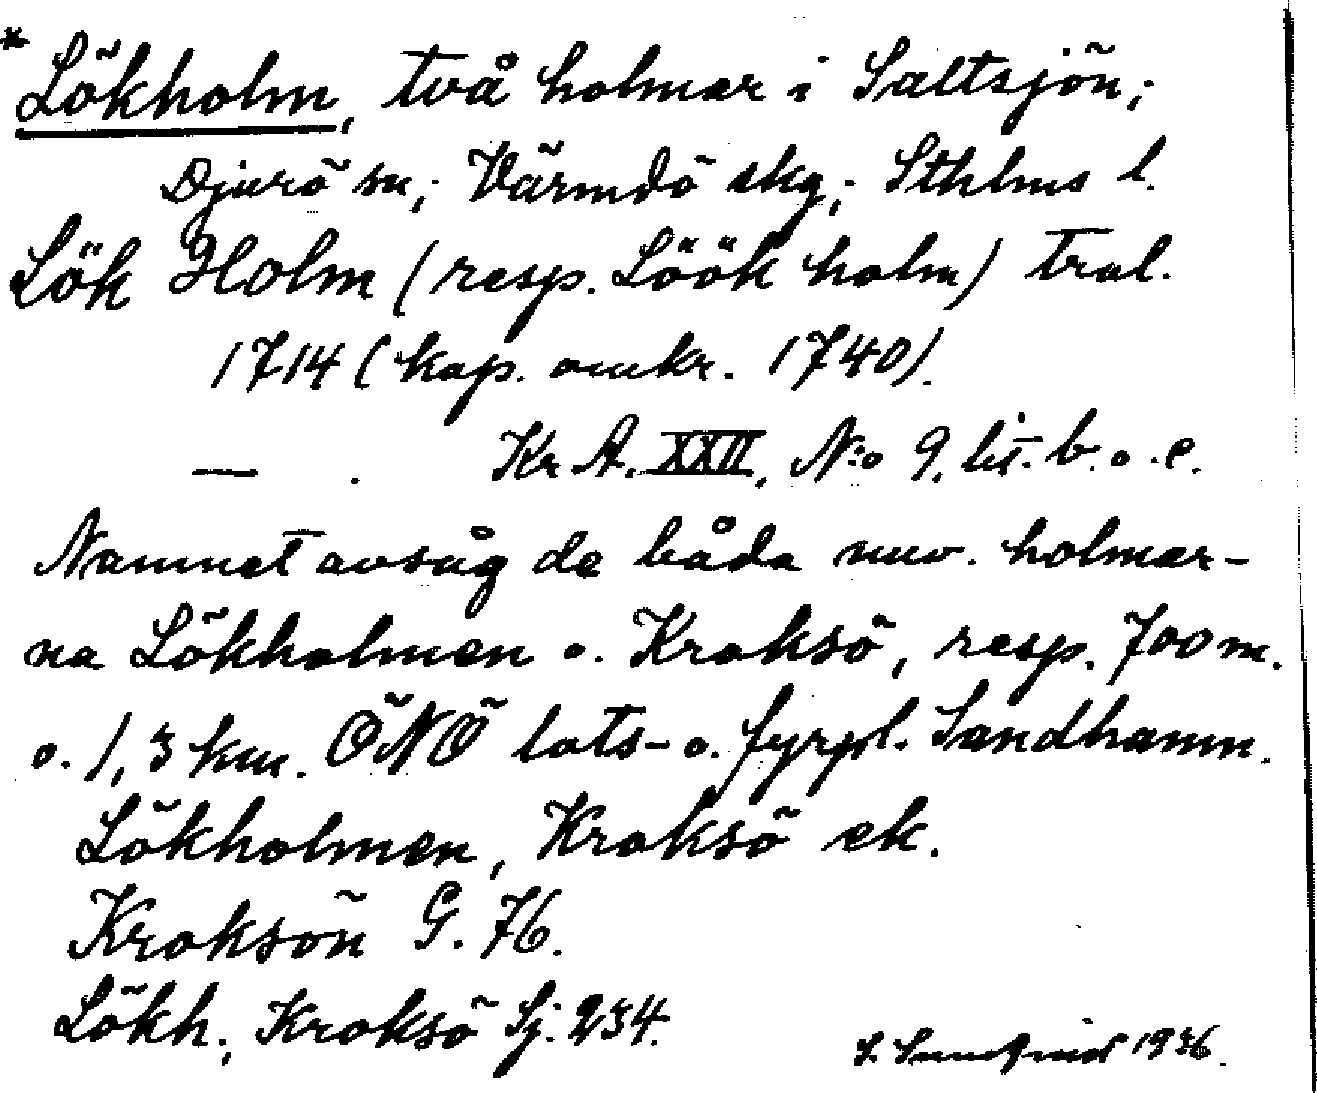 * Lökholm, två holmar i Saltsjön;
Djurö sn; Värmdö skg; Sthlms l.
Lök Holm (resp. Löök holm) tral.
1714 (kop. omkr. 1740).
— . Kr A. XXII, N:o 9, lit. b. o. e.
Namnet avsåg de båda nuv. holmar-
na Lökholmen o. Kroksö, resp. 700 m.
o. 1,3 km. ÖNÖ lots- o. fyrpl. Sandhamn.
Lökholmen, Kroksö ek.
Kroksön G. 76.
Lökh., Kroksö Sj. 234.
1936.